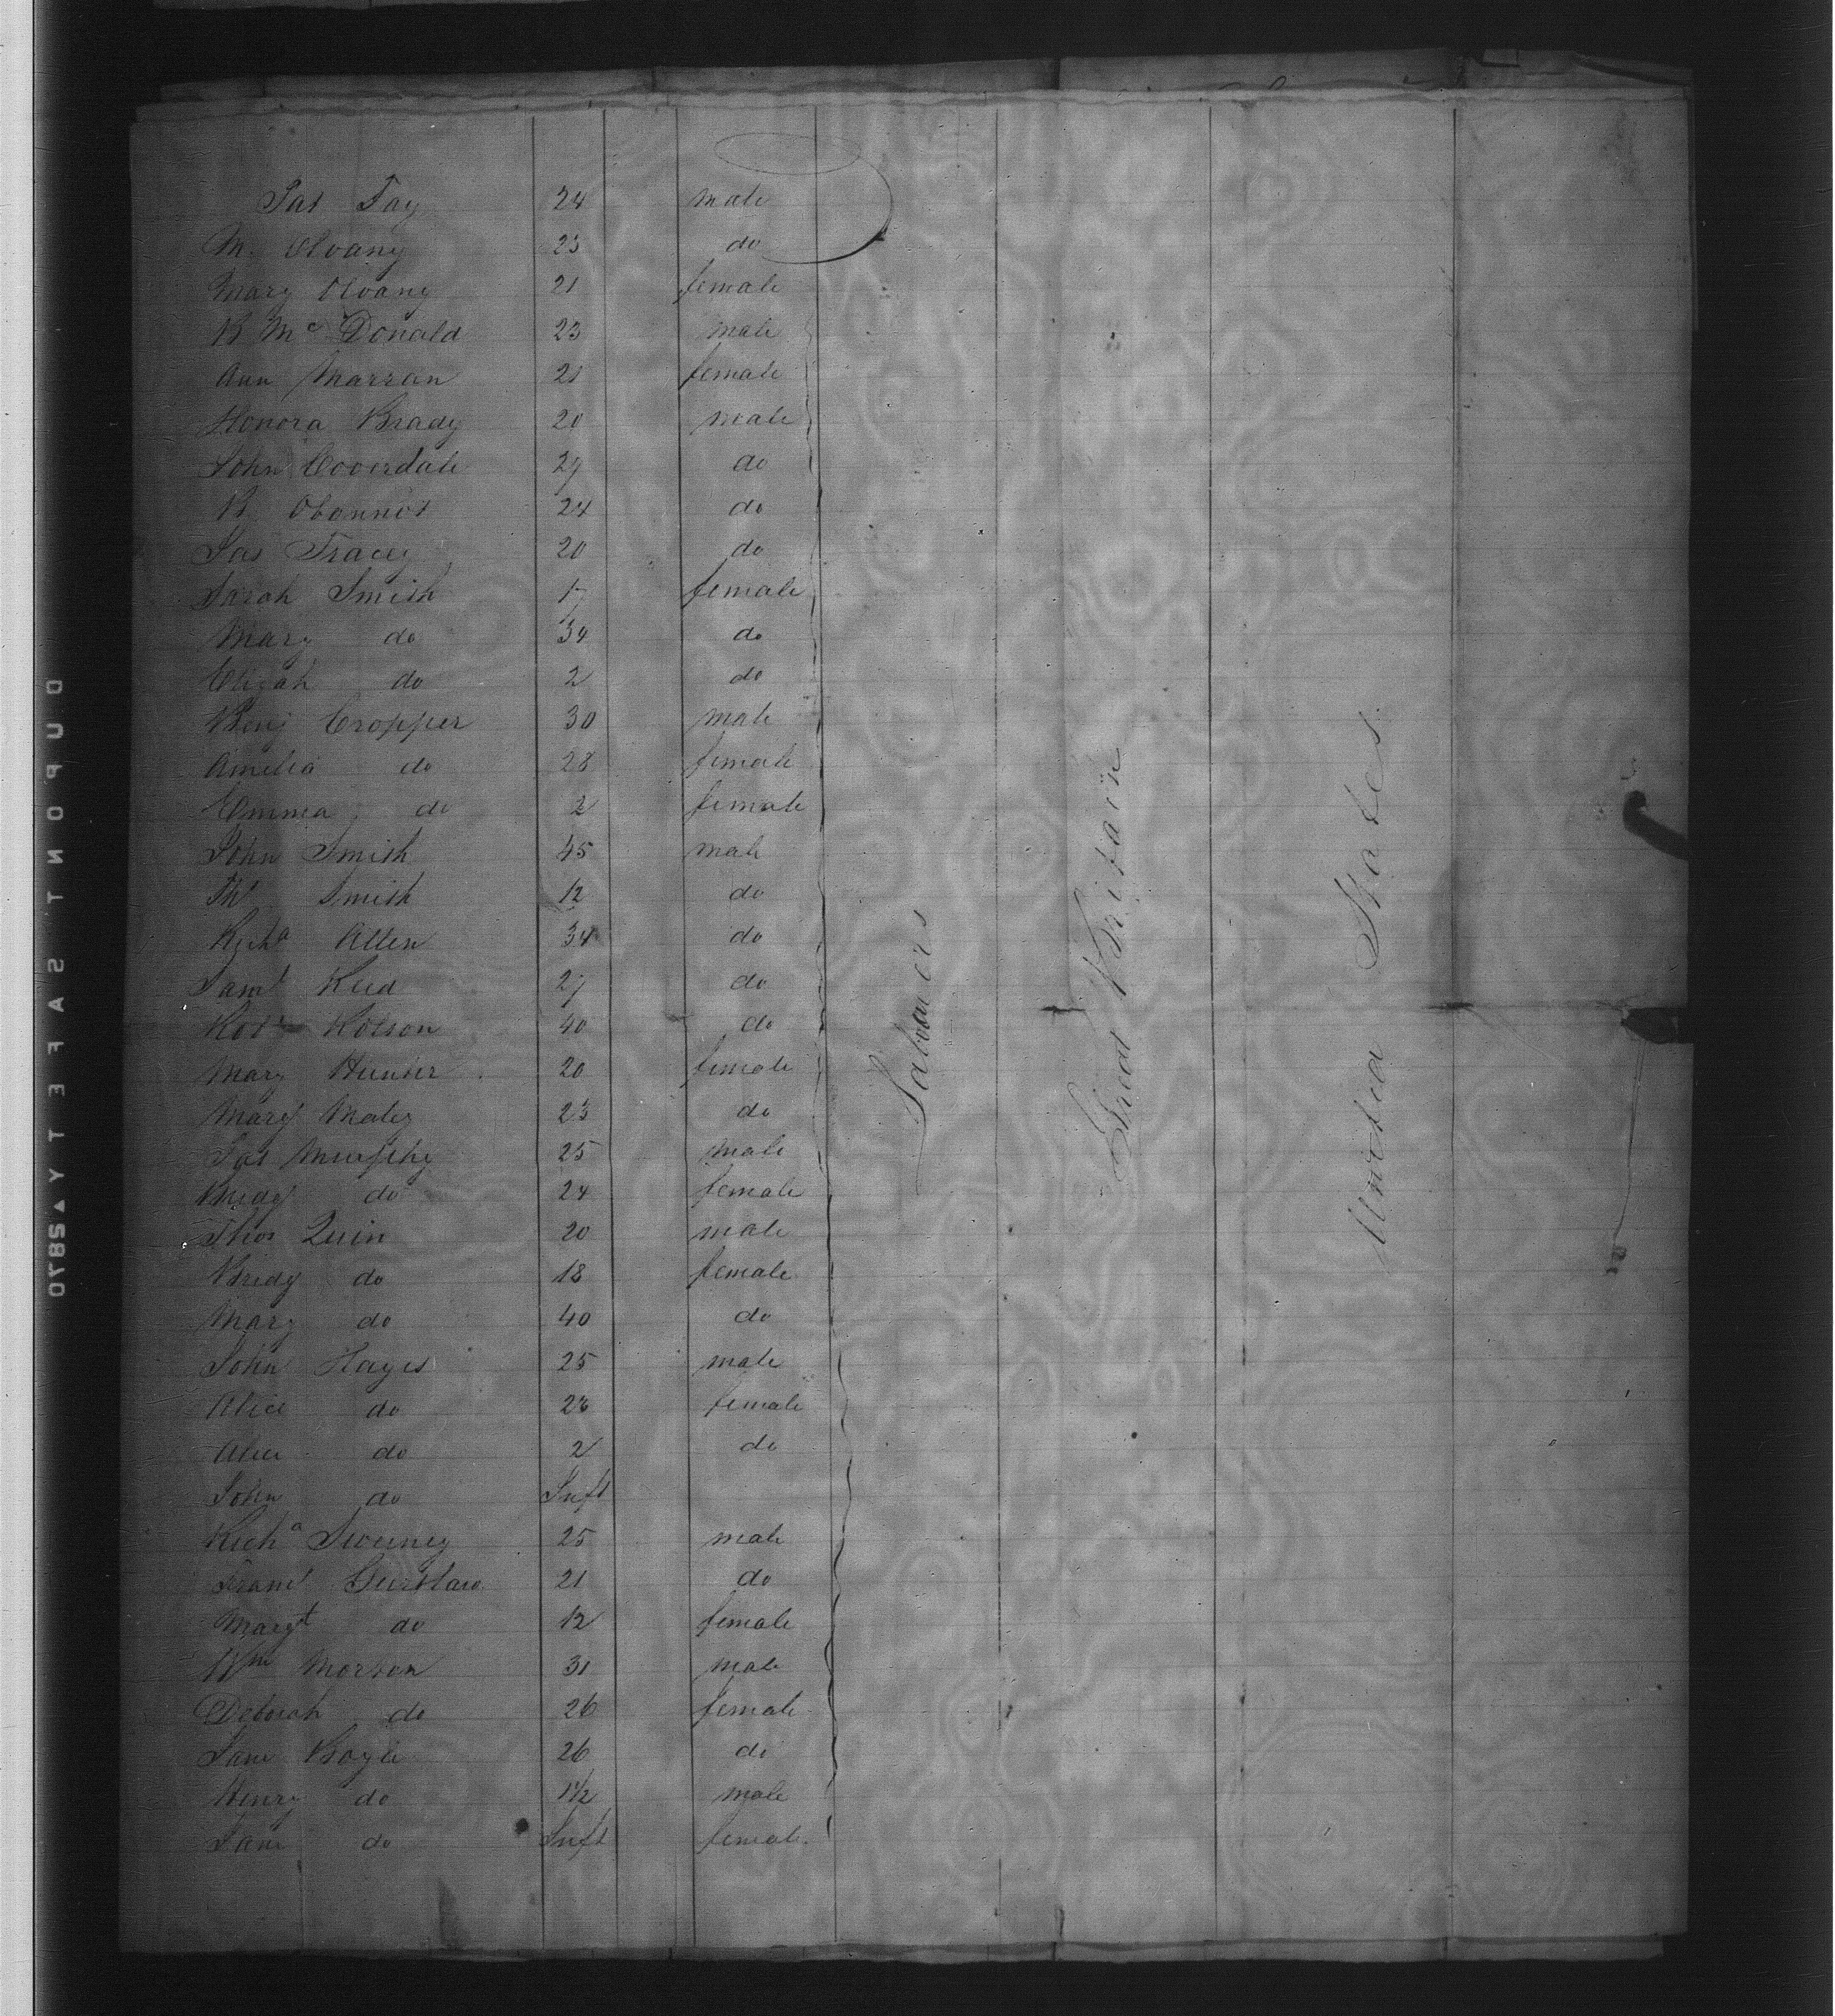 Jas Fay 24 male
M. Olvany 23 do
Mary Olvany 21 female
B McDonald 23 male
Ann Marran 21 female
Honora Brady 20 male
John Coverdale 27 do
B. OConnor 24 do
Jas Tracey 20 do
Sarah Smith 17 female
Mary do 34 do
Elizah do 2 do
Benj Cropper 30 male
Amelia do 28 female
Emma do 2 female
John Smith 45 male
Ths Smith 12 do
Richd Allen 34 do
Saml Reid 27 do
Robt Robson 40 do
Mary Hunter 20 female
Mary Maley 23 do
Jas Murphy 25 male
Bridy do 24 female
Thos Quin 20 male
Bridy do 18 female
Mary do 40 do
John Hayes 25 male
Alice do 28 female
Alice do 2 do
John do Inft
Richd Sweeney 25 male
21 do
Margt do 12 female
Wm Morton 31 male
Deborah do 26 female
Jane Boyle 26 do
Henry do 1 1/2 male
Jane do Inft female
Labourers
Great Britain
United States
DUPONT SAFETY